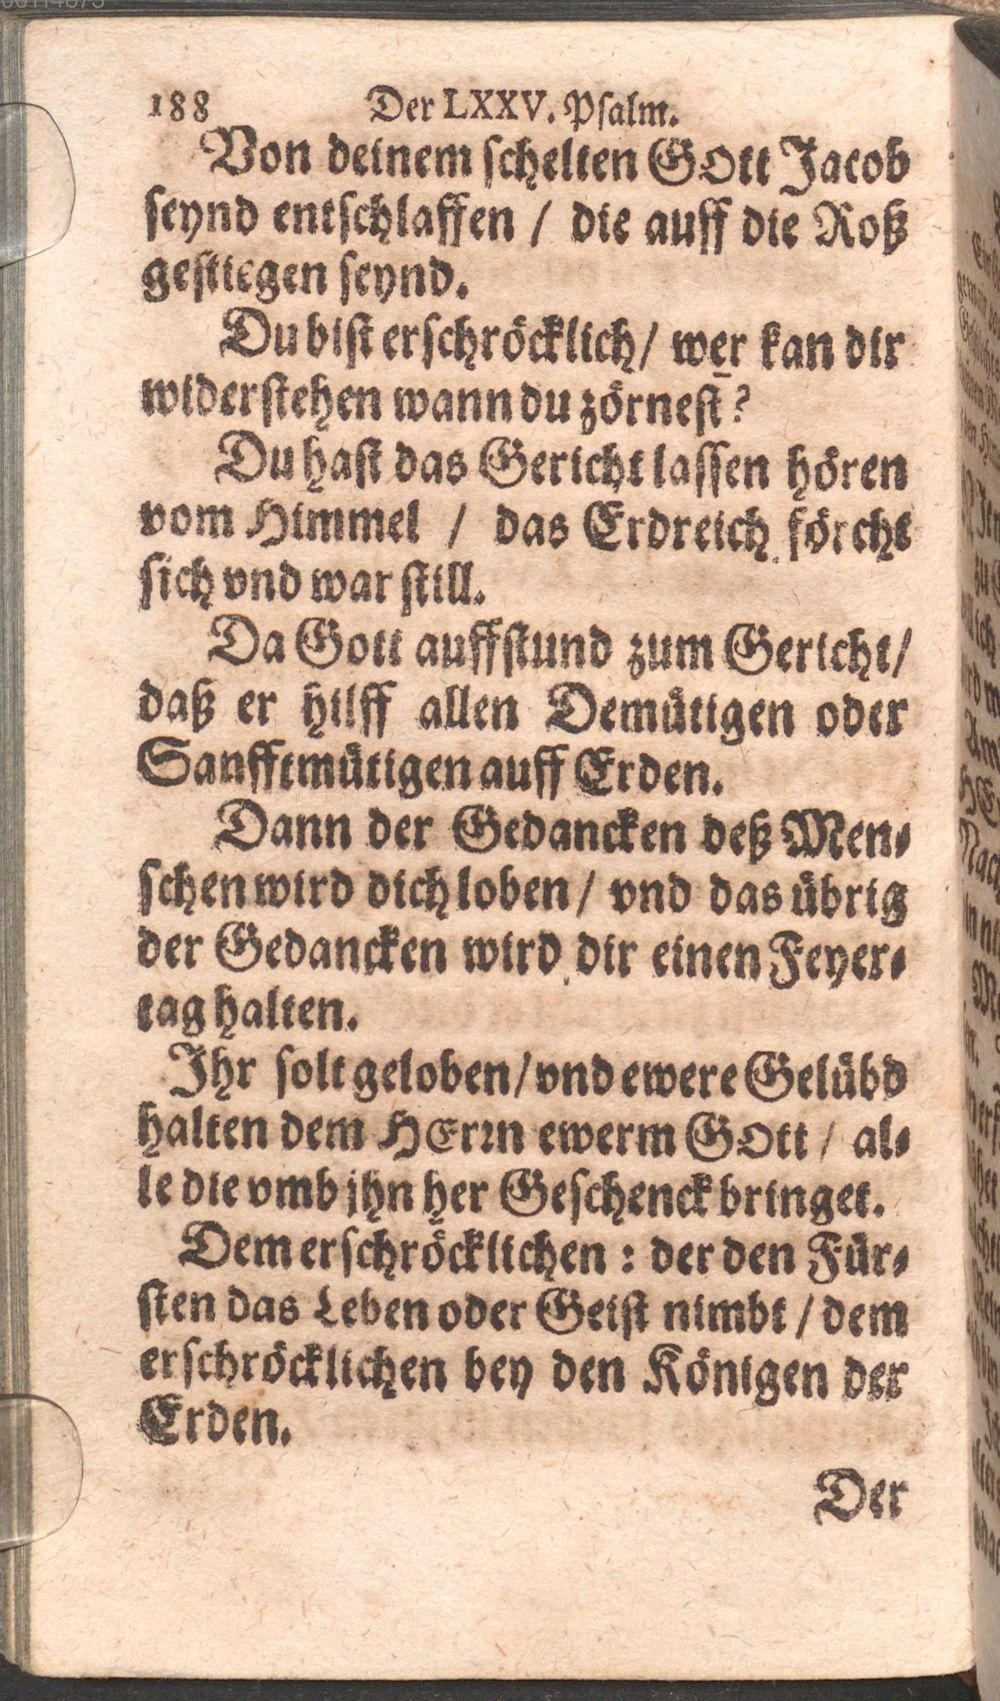 188 Der LXXV. Psalm.
Von deinem schelten GOtt Jacob
seynd entschlaffen / die auff die Roß
gestiegen seynd.
Du bist erschröcklich/ wer kan dir
widerstehen wann du zörnest?
Du hast das Gericht lassen hören
vom Himmel / das Erdreich förcht
sich vnd war still.
Da Gott auffstund zum Gericht/
daß er hilff allen Demütigen oder
Sanfftmütigen auff Erden.
Dann der Gedancken deß Men-
schen wird dich loben / vnd das übrig
der Gedancken wird dir einen Feyer-
tag halten.
Ihr solt geloben/ vnd ewere Gelübd
halten dem HErrn ewerm GOtt / al-
le die vmb jhn her Geschenck bringet.
Dem erschröcklichen : der den Für-
sten das Leben oder Geist nimbt / dem
erschröcklichen bey den Königen der
Erden.
Der